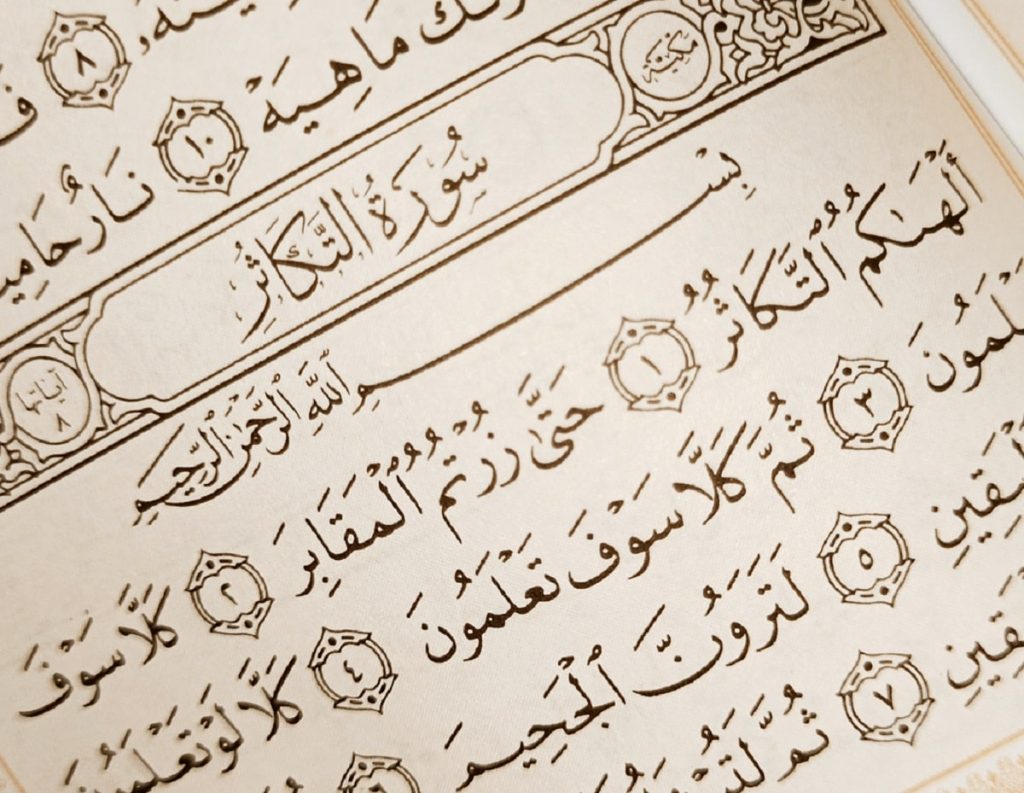 ٨
مَا هِيَهْ ١٠ نَارٌ حَامِيَـ
مكية سُورَةُ التَّكَاثُرِ آياتها ٨
بِسْمِ ٱللَّهِ ٱلرَّحْمَٰنِ ٱلرَّحِيمِ
أَلْهَىٰكُمُ ٱلتَّكَاثُرُ ١ حَتَّىٰ زُرْتُمُ ٱلْمَقَابِرَ ٢ كَلَّا سَوْفَ
ـعْلَمُونَ ٣ ثُمَّ كَلَّا سَوْفَ تَعْلَمُونَ ٤ كَلَّا لَوْ تَعْلَمُونَ
ـيَقِينِ ٥ لَتَرَوُنَّ ٱلْجَحِيمَ ٦
ـيَقِينِ ٧ ثُمَّ